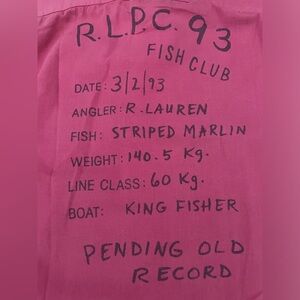 R.L.P.C. 93
FISH CLUB
DATE: 3/2/93
ANGLER: R. LAUREN
FISH: STRIPED MARLIN
WEIGHT: 140.5 Kg.
LINE CLASS: 60 Kg.
BOAT: KING FISHER
PENDING OLD
RECORD